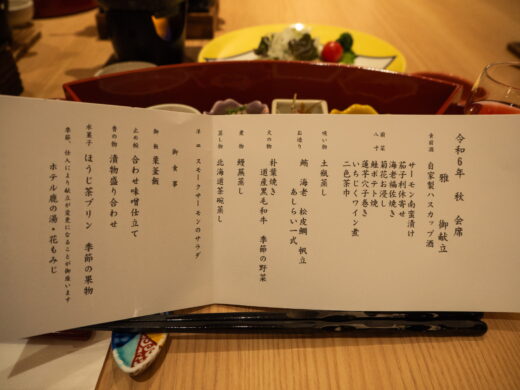 令和6年 秋 会席
雅 御献立
食前酒 自家製ハスカップ酒
前菜
八寸
サーモン南蛮漬け
茄子利休寄せ
海老福佐焼き
菊花お浸し
鮭ポテト焼
蓮芋穴子巻き
いちじくワイン煮
二色茶巾
吸い物 土瓶蒸し
お造り 鮪 海老 松皮鯛 帆立
あしらい一式
火の物 朴葉焼き
道産黒毛和牛 季節の野菜
煮物 鰻蕪蒸し
蒸し物 北海道茶碗蒸し
洋皿 スモークサーモンのサラダ
御食事
御飯 栗釜飯
止め椀 合わせ味噌仕立て
香の物 漬物盛り合わせ
水菓子 ほうじ茶プリン 季節の果物
季節、仕入により献立が変更になることが御座います
ホテル鹿の湯・花もみじ